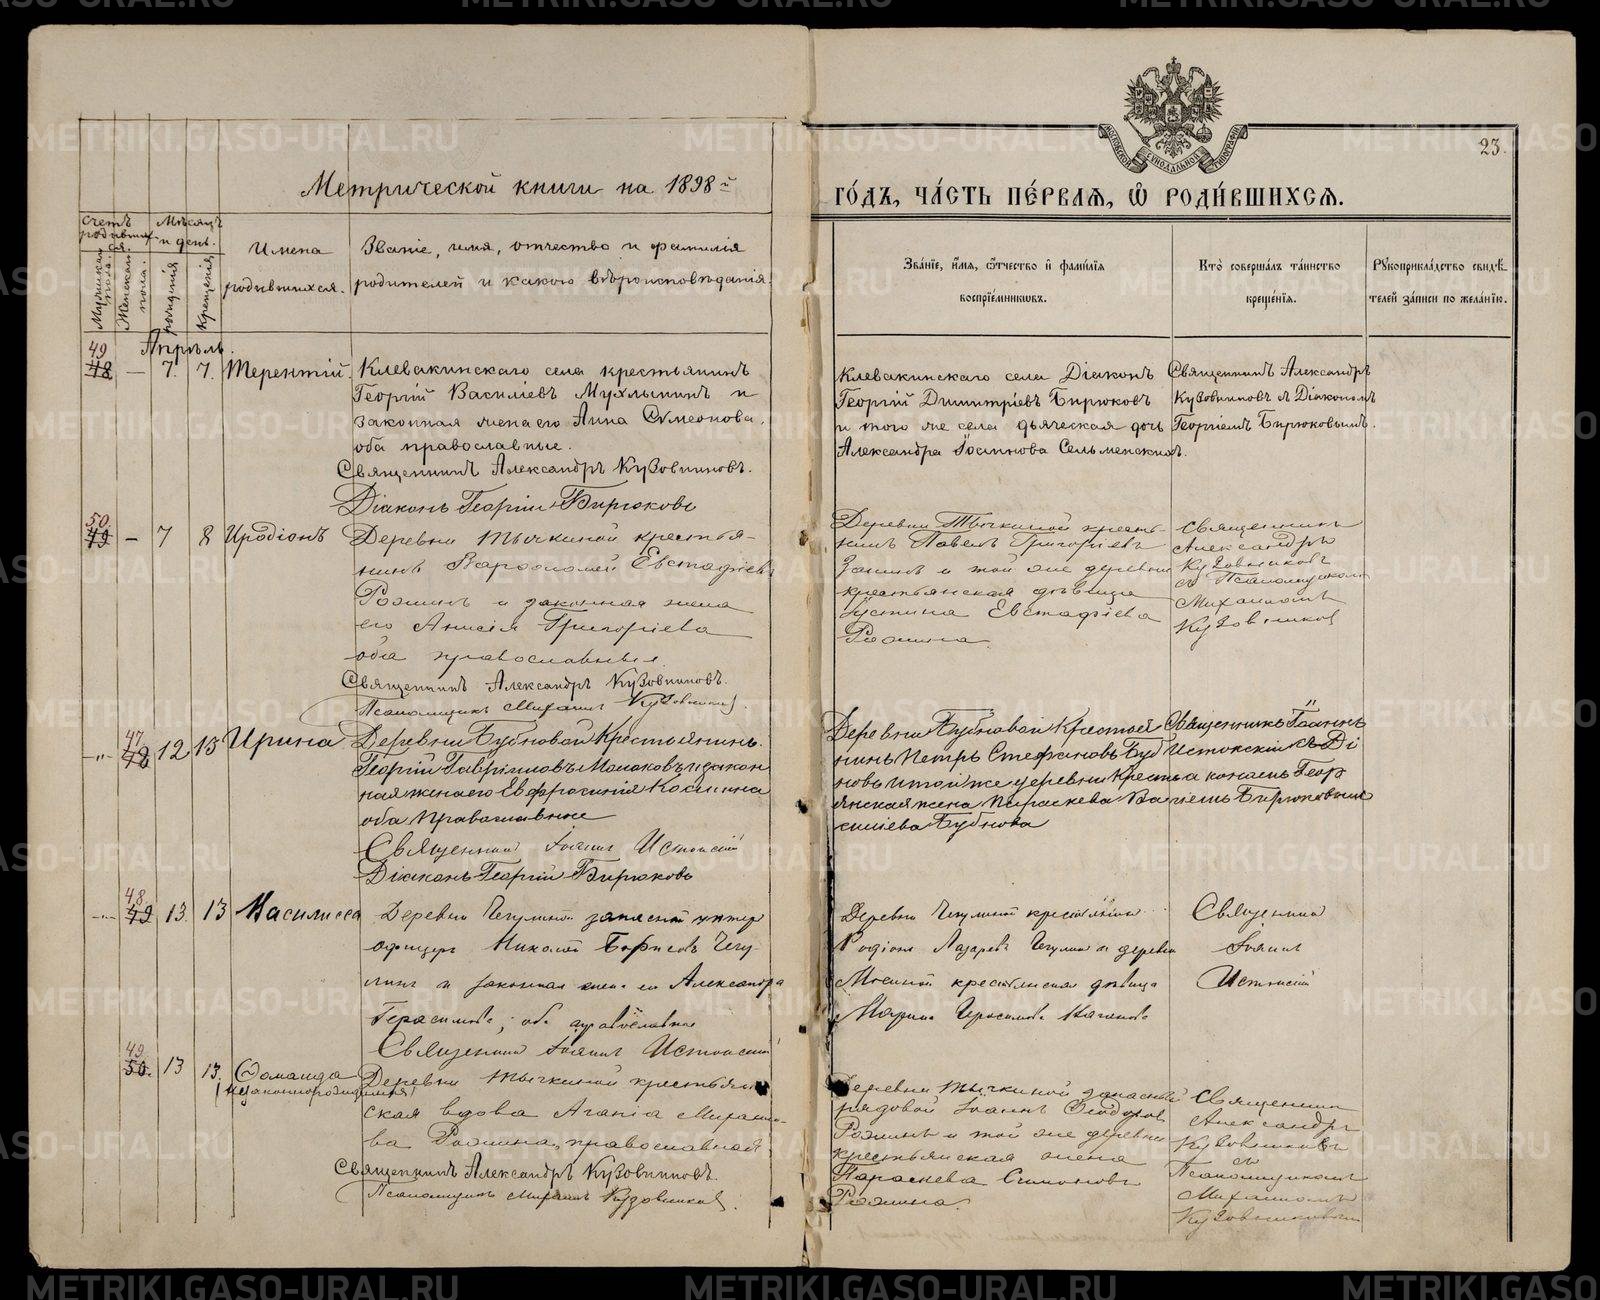 Метрической книги на 1898й
годъ, часть первая, ѡ родившихся.
23.
Счетъ родившихся.
Мѣсяцъ и день.
Мужеска пола.
Женска пола.
рожденія
крещенія
Имена родившихся.
Званіе, имя, отчество и фамилія
родителей и какого вѣроисповѣданія.
Званіе, имя, отчество и фамилія
воспріемниковъ.
Кто совершалъ таинство
крещенія.
Рукоприкладство свидѣ-
телей записи по желанію.
Апрѣль.
49
48 — 7. 7. Терентій
Клевакинскаго села крестьянинъ
Георгій Василіевъ Мухлынинъ и
законная жена его Анна Сѵмеонова,
оба православные.
Священникъ Александръ Кузовниковъ.
Діаконъ Георгій Бирюковъ
Клевакинскаго села Діаконъ
Георгій Димитріевъ Бирюковъ
и того же села дьяческая дочь
Александра Іосифова Сельменскихъ.
Священникъ Александръ
Кузовниковъ съ Діакономъ
Георгіемъ Бирюковымъ.
50.
49 — 7 8 Иродіонъ
Деревни Тычкиной крестья-
нинъ Варѳоломей Евстафіевъ
Рожинъ и законная жена
его Анисія Григоріева
оба православные.
Священникъ Александръ Кузовниковъ.
Псаломщикъ Михаилъ Кузовниковъ.
Деревни Тычкиной кресть-
нинъ Павелъ Григоріевъ
и той же деревни
крестьянская дѣвица
Іустина Евстафіева
Рожина.
Священникъ
Александръ
Кузовниковъ
съ Псаломщикомъ
Михаиломъ
Кузовников
47
48 12 15 Ирина
Деревни Бубновой Крестьянинъ
Георгій Гавріиловъ и закон
ная жена его Евфросинія Космина
оба православные
Священникъ Іоаннъ Истокскій
Діаконъ Георгій Бирюковъ
Деревни Бубновой Крестья
нинъ Петръ Стефановъ Буб
новъ и той же деревни Кресть
янская жена Параскева Ва
силіева Бубнова
Священникъ Іоаннъ
Истокскій съ Ді
акономъ Геор
гіемъ Бирюковымъ
48
49 13. 13 Василисса
Деревни запасный унтеръ
офицеръ Николай Борисовъ
и законная жена его Александра
Герасимова, оба православные
Священникъ Іоаннъ Истокскій
Деревни крестьянинъ
Родіонъ Лазаревъ и деревни
Мосиной крестьянская дѣвица
Марина Герасимова
Священникъ
Іоаннъ
Истокскій
49
50. 13 13. Домнида
(незаконнорожденная)
Деревни Тычкиной крестьян-
ская вдова Агапіа
Рожина, православная
Священникъ Александръ Кузовниковъ.
Псаломщикъ Михаилъ Кузовниковъ.
Деревни Тычкиной запасный
рядовой Іоаннъ Ѳеодоровъ
Рожинъ и той же деревни
крестьянская жена
Параскева Симонова
Рожина.
Священникъ
Александръ
Кузовниковъ
съ
Псаломщикомъ
Михаиломъ
Кузовниковымъ
METRIKI.GASO-URAL.RU